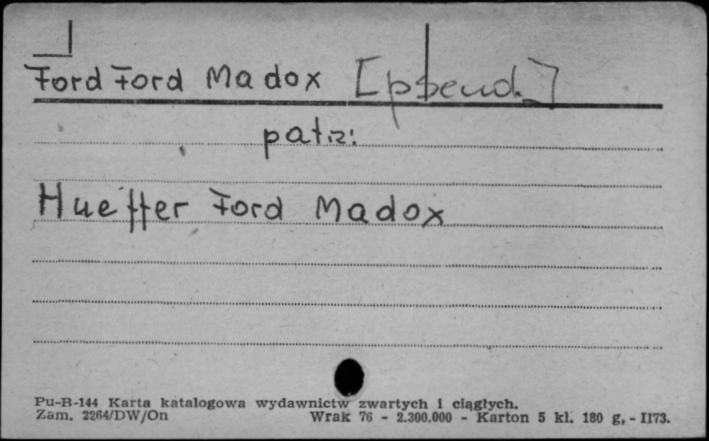 Ford Ford Madox [pseud.]
patrz:
Hueffer Ford Madox
Pu-B-144 Karta katalogowa wydawnictw zwartych i ciągłych.
Zam. 2264/DW/On Wrak 76 - 2.300.000 - Karton 5 kl. 180 g, - II73.